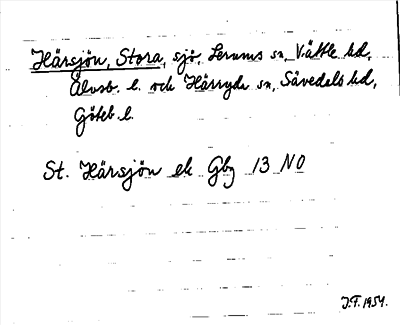 Härsjön, Stora, sjö, Lerums sn, Vättle hd,
Älvsb. l. och Härryda sn, Sävedals hd,
Göteb l.
St. Härsjön ek Gbg 13 NO
J.T. 1954.